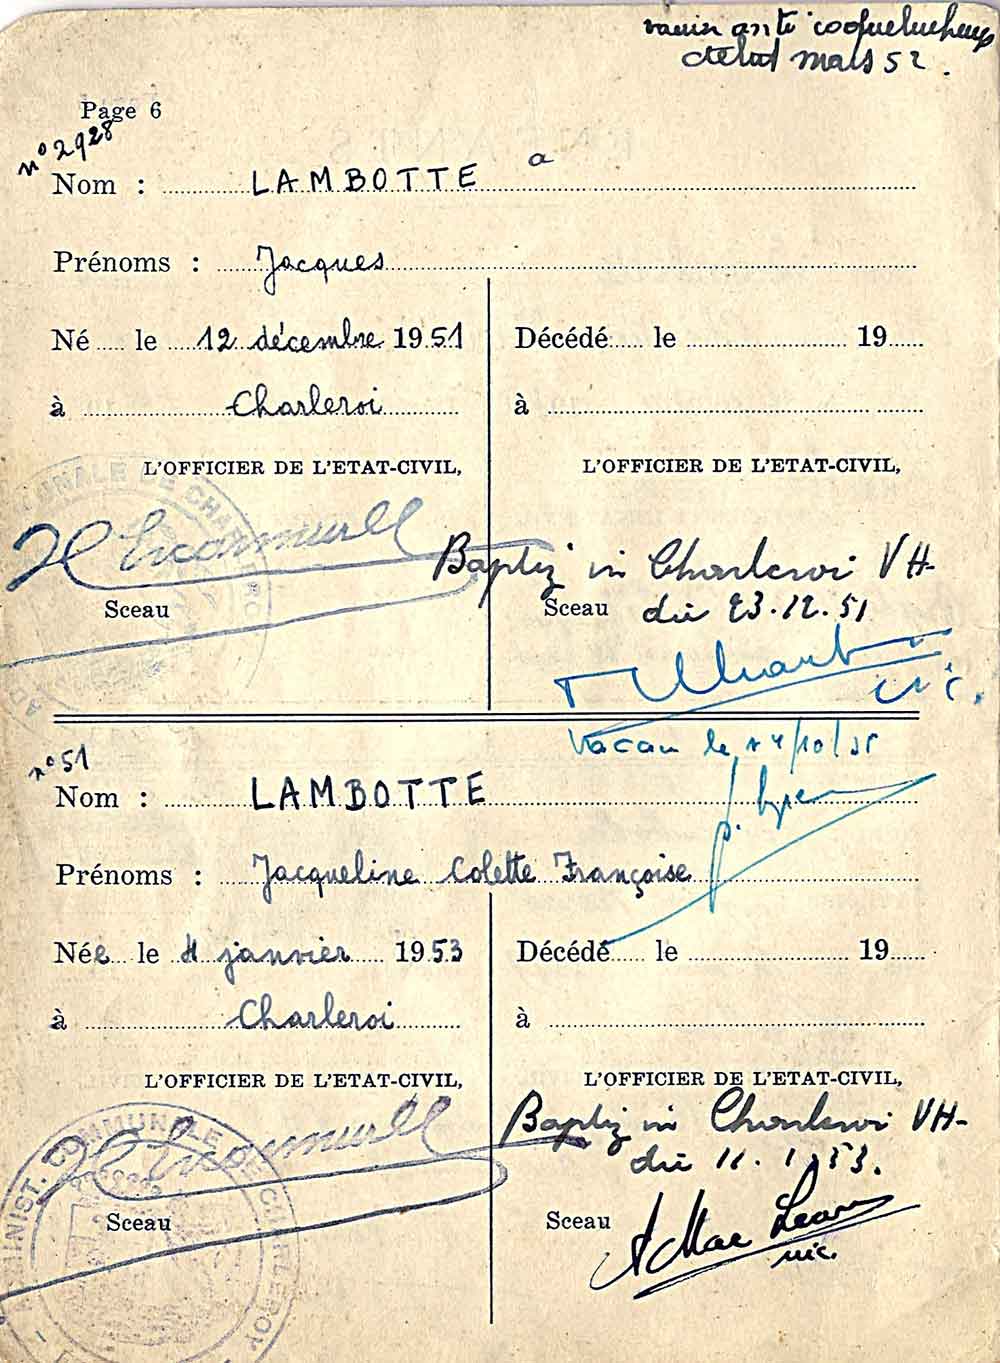 vaccin anti coquelucheux
début mars 52.
Page 6
n° 2928
Nom : LAMBOTTE a
Prénoms : Jacques
Né le 12 décembre 1951
à Charleroi
L'OFFICIER DE L'ETAT-CIVIL,
Sceau
Décédé le 19
à
L'OFFICIER DE L'ETAT-CIVIL,
Baptiz in Charleroi VH-
Sceau
die 23.12.51
vic.
n° 51
Nom : LAMBOTTE
Prénoms : Jacqueline Colette Françoise
Née le 4 janvier 1953
à Charleroi
L'OFFICIER DE L'ETAT-CIVIL,
ADMINIST. COMMUNALE DE CHARLEROY
Sceau
Décédé le 19
à
L'OFFICIER DE L'ETAT-CIVIL,
Baptiz in Charleroi VH-
die 11.1.53.
Sceau
vic.